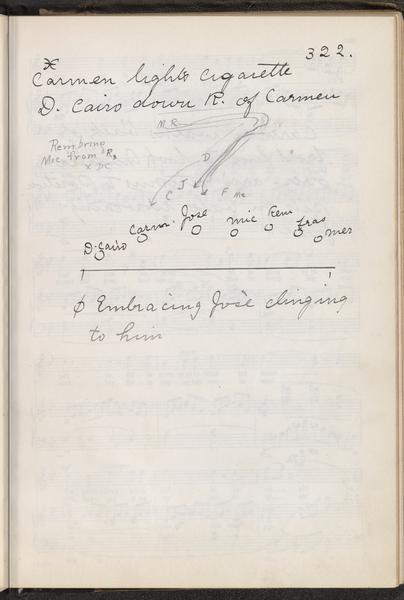 322.
Carmen lights cigarette
D. Cairo down R. of Carmen
M R
Rem. bring
Mic. from R3
x DC
D
C J F Me
D. Cairo Carm. José Mic Rem Fras Mer
ϕ Embracing José clinging
to him